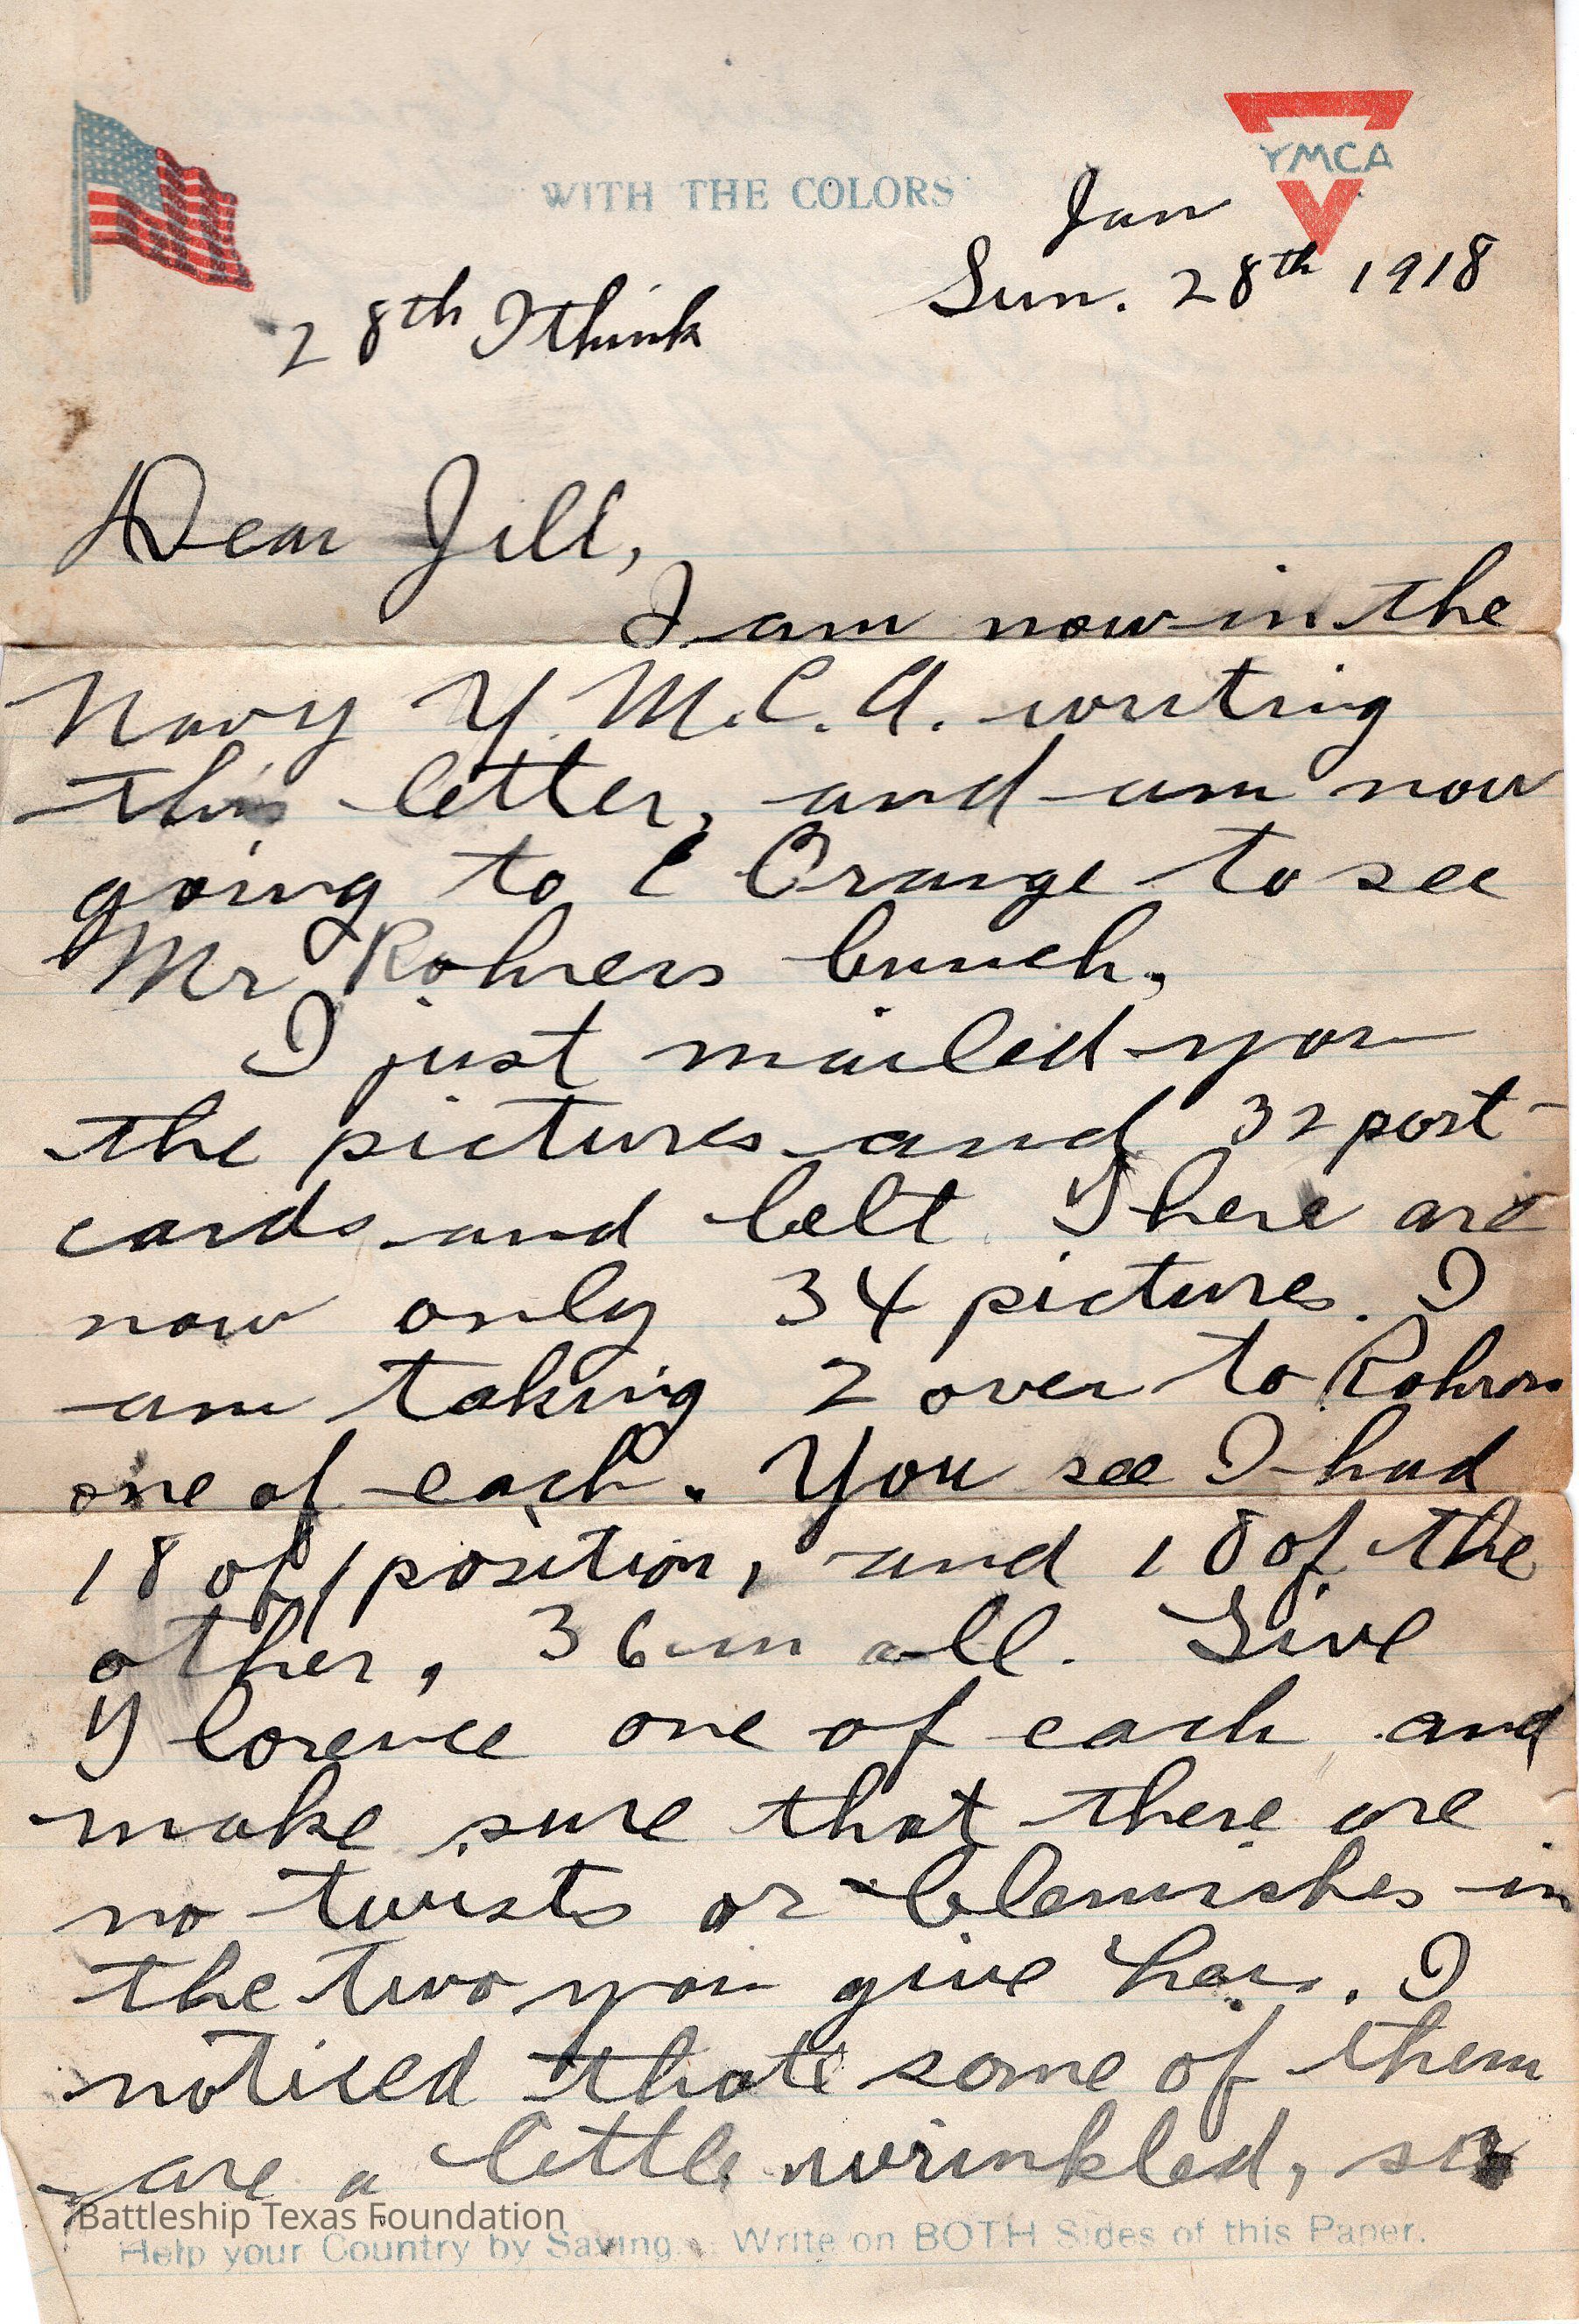 WITH THE COLORS
YMCA
Jan
Sun. 28th 1918
28th I think
Dear Jill,
I am now in the
Navy Y.M.C.A. writing
this letter, and am now
going to E Orange to see
Mr Rohrers bunch.
I just mailed you
the pictures and 32 post-
cards and belt. There are
now only 34 pictures. I
am taking 2 over to Rohrers
one of each. You see I had
18 of 1 position, and 18 of the
other, 36 in all. Give
Florence one of each and
make sure that there are
no twists or blemishes in
the two you give her. I
noticed that some of them
are a little wrinkled, so
Battleship Texas Foundation
Help your Country by Saving. Write on BOTH Sides of this Paper.